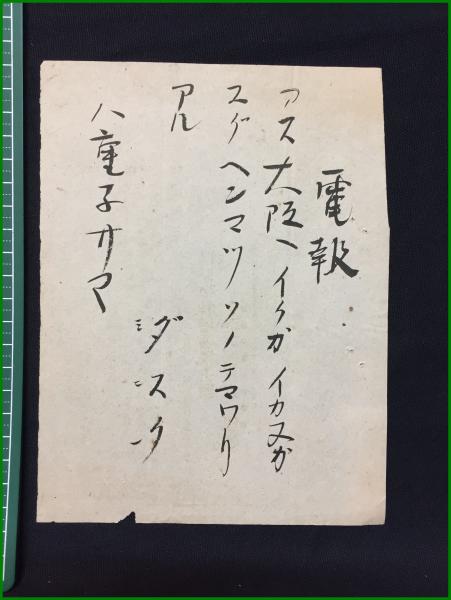 電報
アス大阪ヘイクカイカヌカ
スグヘンマツソノテマワリ
アル
八重子サマ